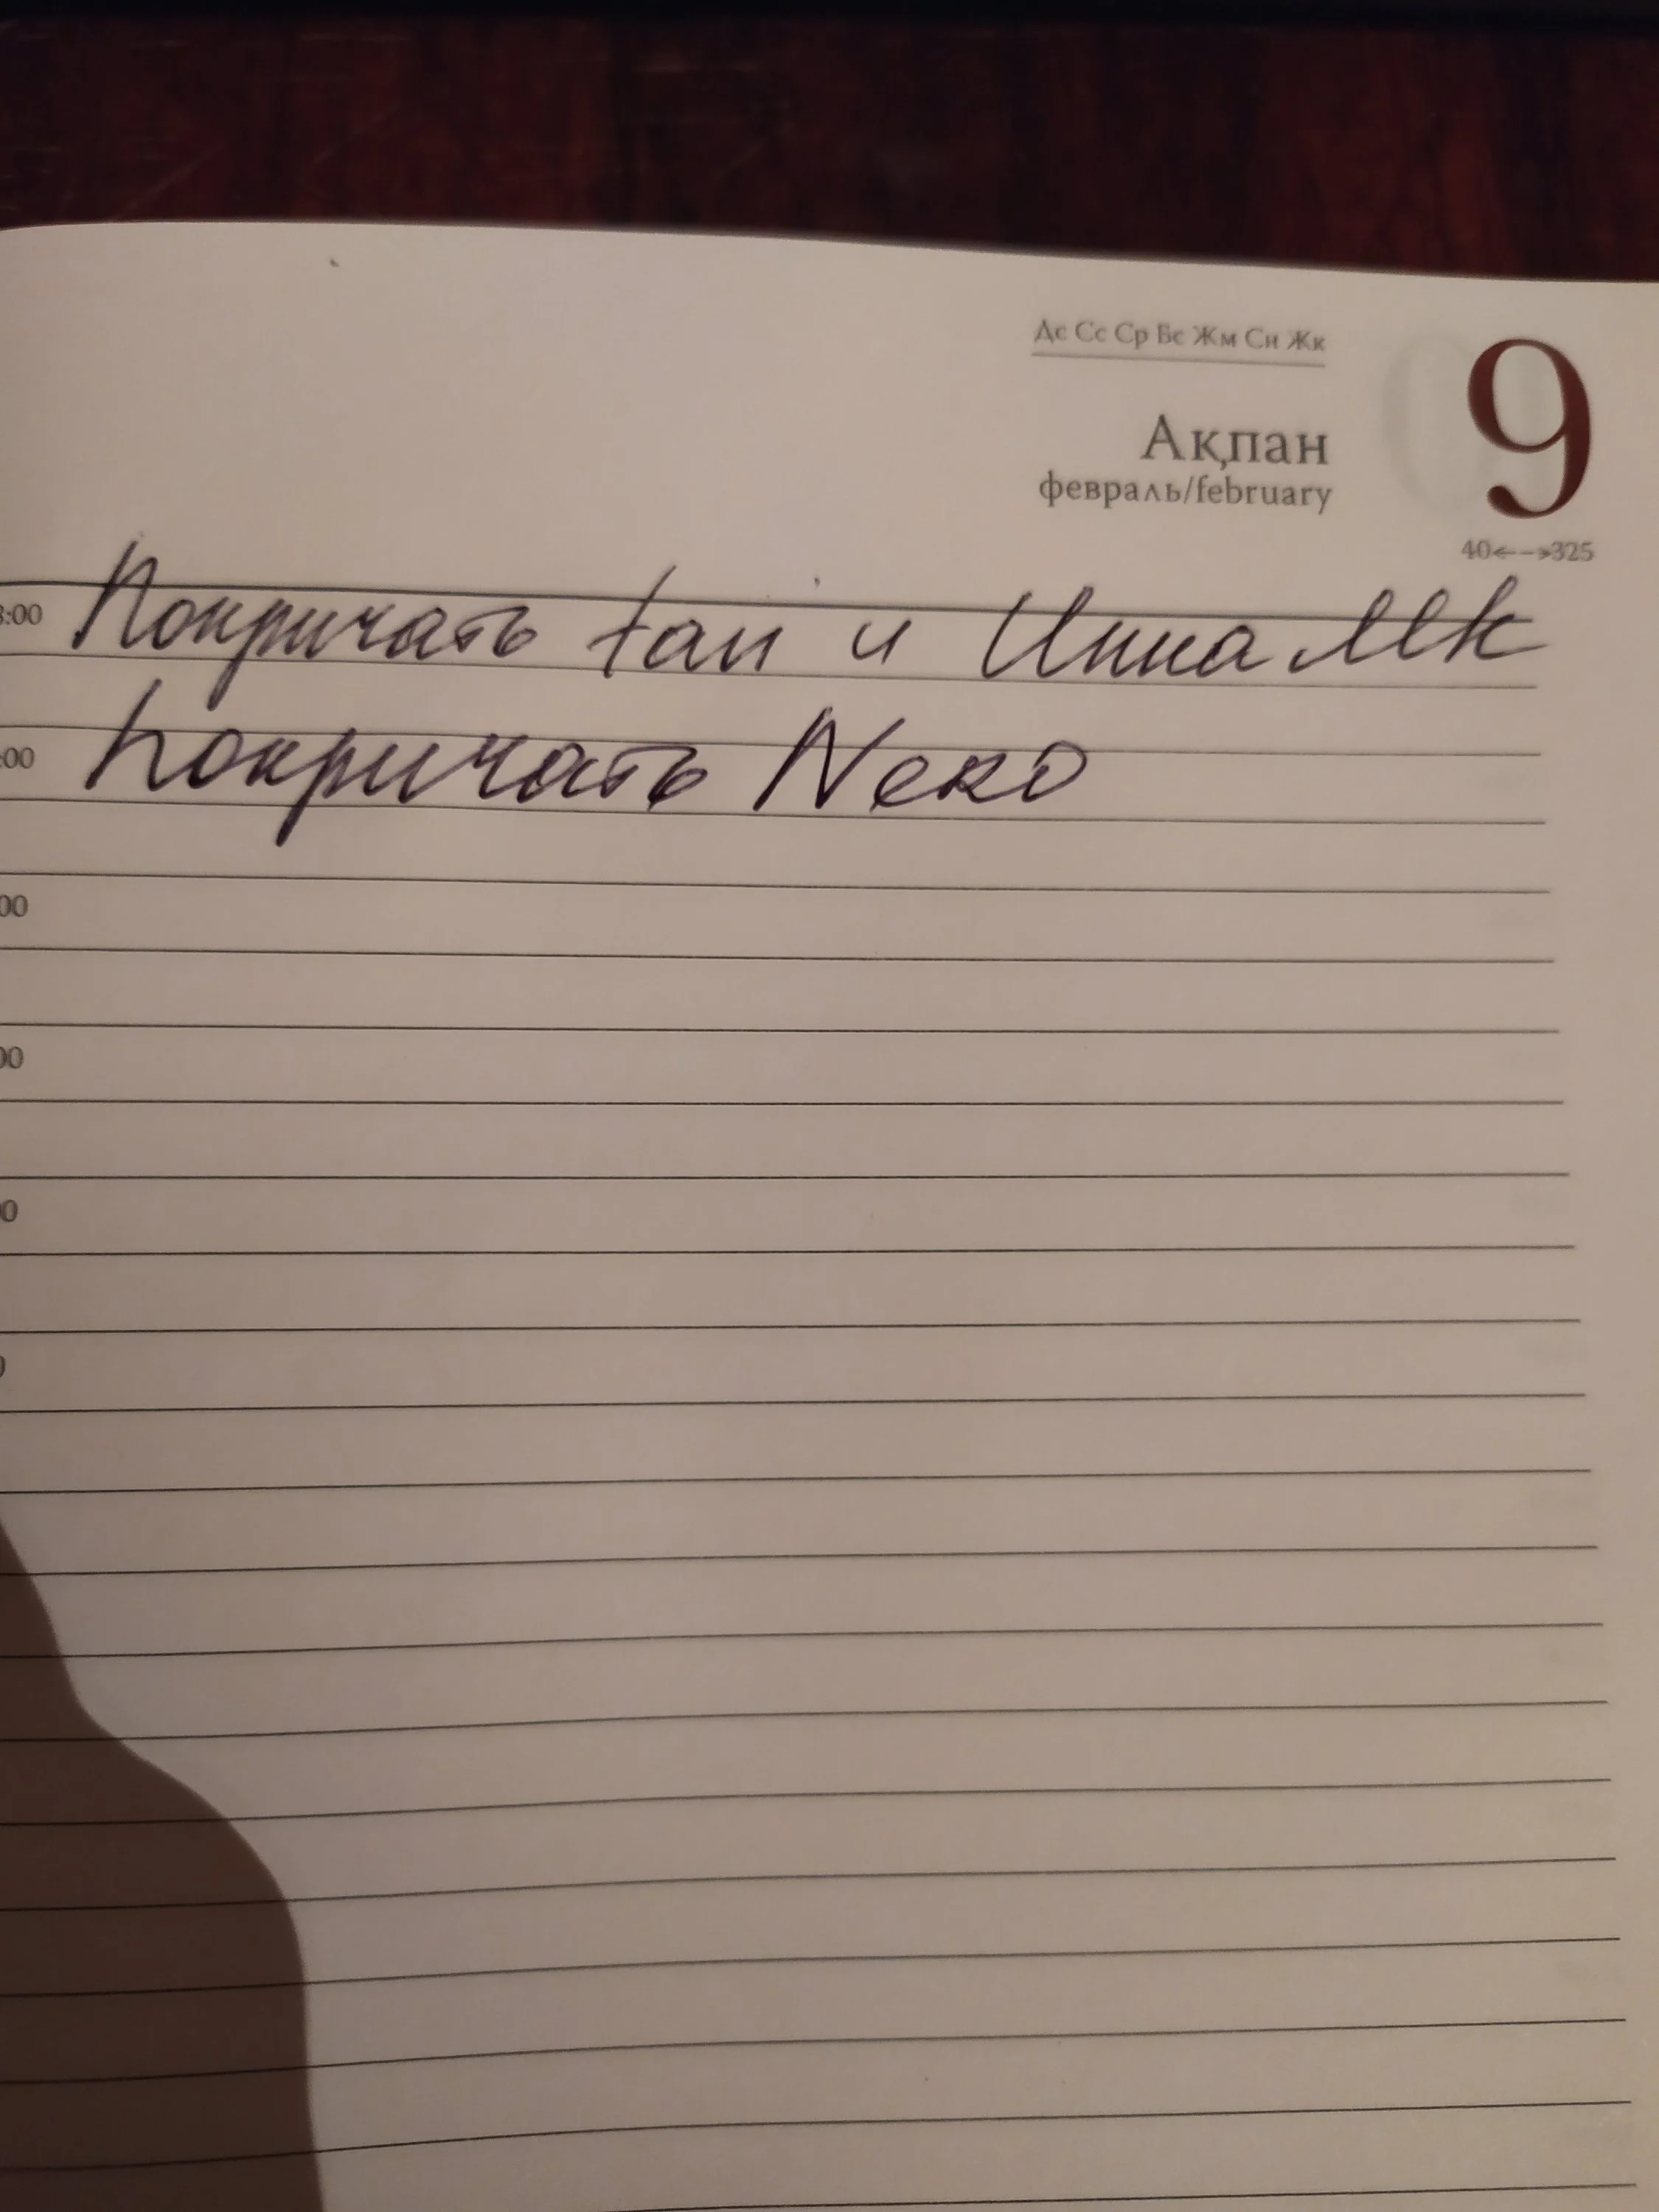 Дс Сс Ср Бс Жм Сн Жк
9
Ақпан
февраль/february
40←--→325
8:00 Покричать tan и Инна МК
:00 Покричать Neko
00
00
00
0